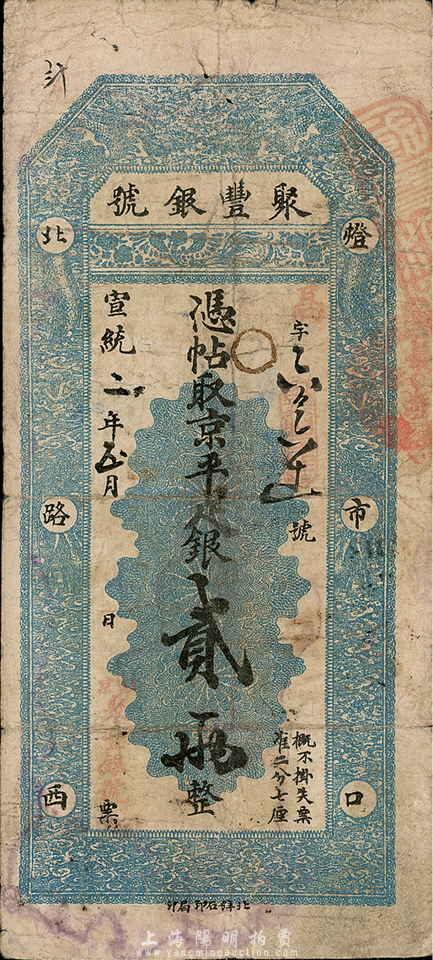 聚豐銀號
燈市口
北路西
字
號
憑帖取京平足銀貳兩整
宣統二年正月
日
票
概不掛失票
准二分七厘
北洋石印局印
上海陽明拍賣
www.yangmingauction.com